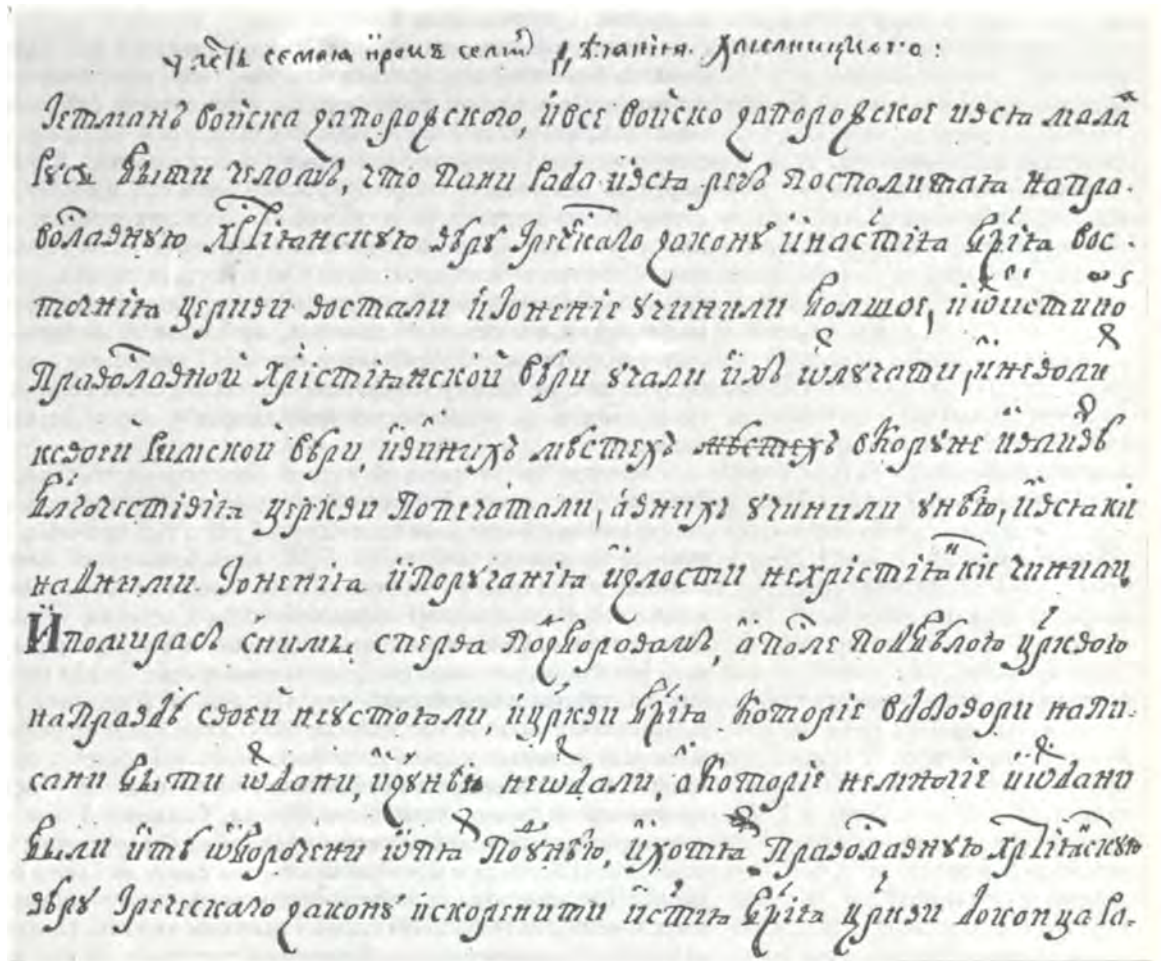 часть семая произ селиӣ дѣяния Хмелницкого:
Гетманъ войска запорозского, и все войско запорозское и вся мала
русы бьти челомъ, что пани рада и вся речъ посполитая на пра-
вославную хрⷭтіянскую вѣру греческаго закону и на стїя бжїя вос-
точнія церкви востали и гоненіе учинили болшое, и ѿ истино
православной хрістіянской вѣри учали ихъ ѿлучати, и неволи
ксвоей римской вѣри, и виних мѣстех мѣстех в коруне и в лидвѣ
благочестівія церкви попечатали, а вних учинили унѣю, и всякіе
над ними гоненія и поруганія и злости нехрістіянскіе чинили,
И помирас сними сперва под Зборовам, а после под Бѣлою церквою
на правдѣ своей неустояли, и цркви бжїя которіе в договори напи-
сани быти ѿдани, и з унѣи неѿдали а которіе немногіе и ѿдани
были и тѣ ѿворочени ѿпят под унѣю, и хотя православную хрⷭтіанскую
вѣру греческаго закону искоренити и стія бжїя цркви до конца ра-